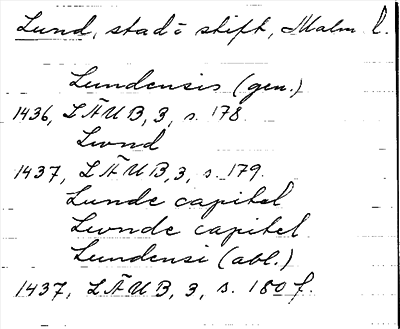 Lund, stad o stift, Malm l.
Lundensis (gen.)
1436, LÄUB, 3, s. 178.
Lwnd
1437, LÄUB, 3, s. 179.
Lunde capitel
Lwnde capitel
Lundensi (abl.)
1437, LÄUB, 3, s. 180 f.